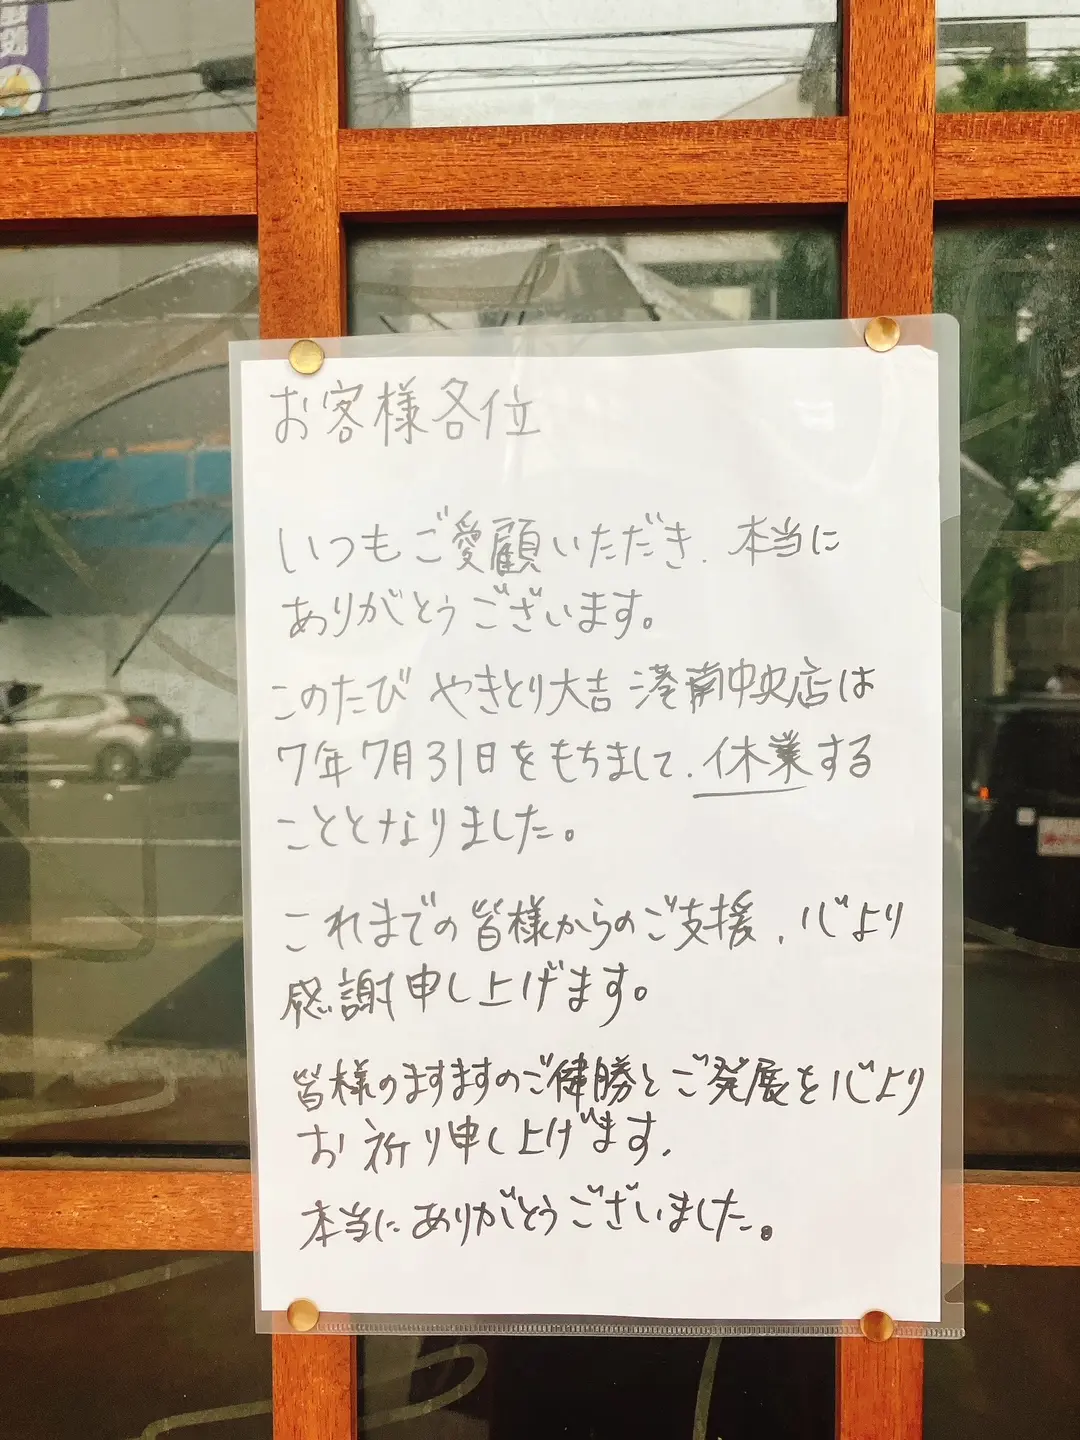 お客様各位
いつもご愛顧いただき、本当に
ありがとうございます。
このたび やきとり大吉 港南中央店は
7年7月31日をもちまして、休業する
こととなりました。
これまでの皆様からのご支援、心より
感謝申し上げます。
皆様のますますのご健勝とご発展を心より
お祈り申し上げます。
本当にありがとうございました。